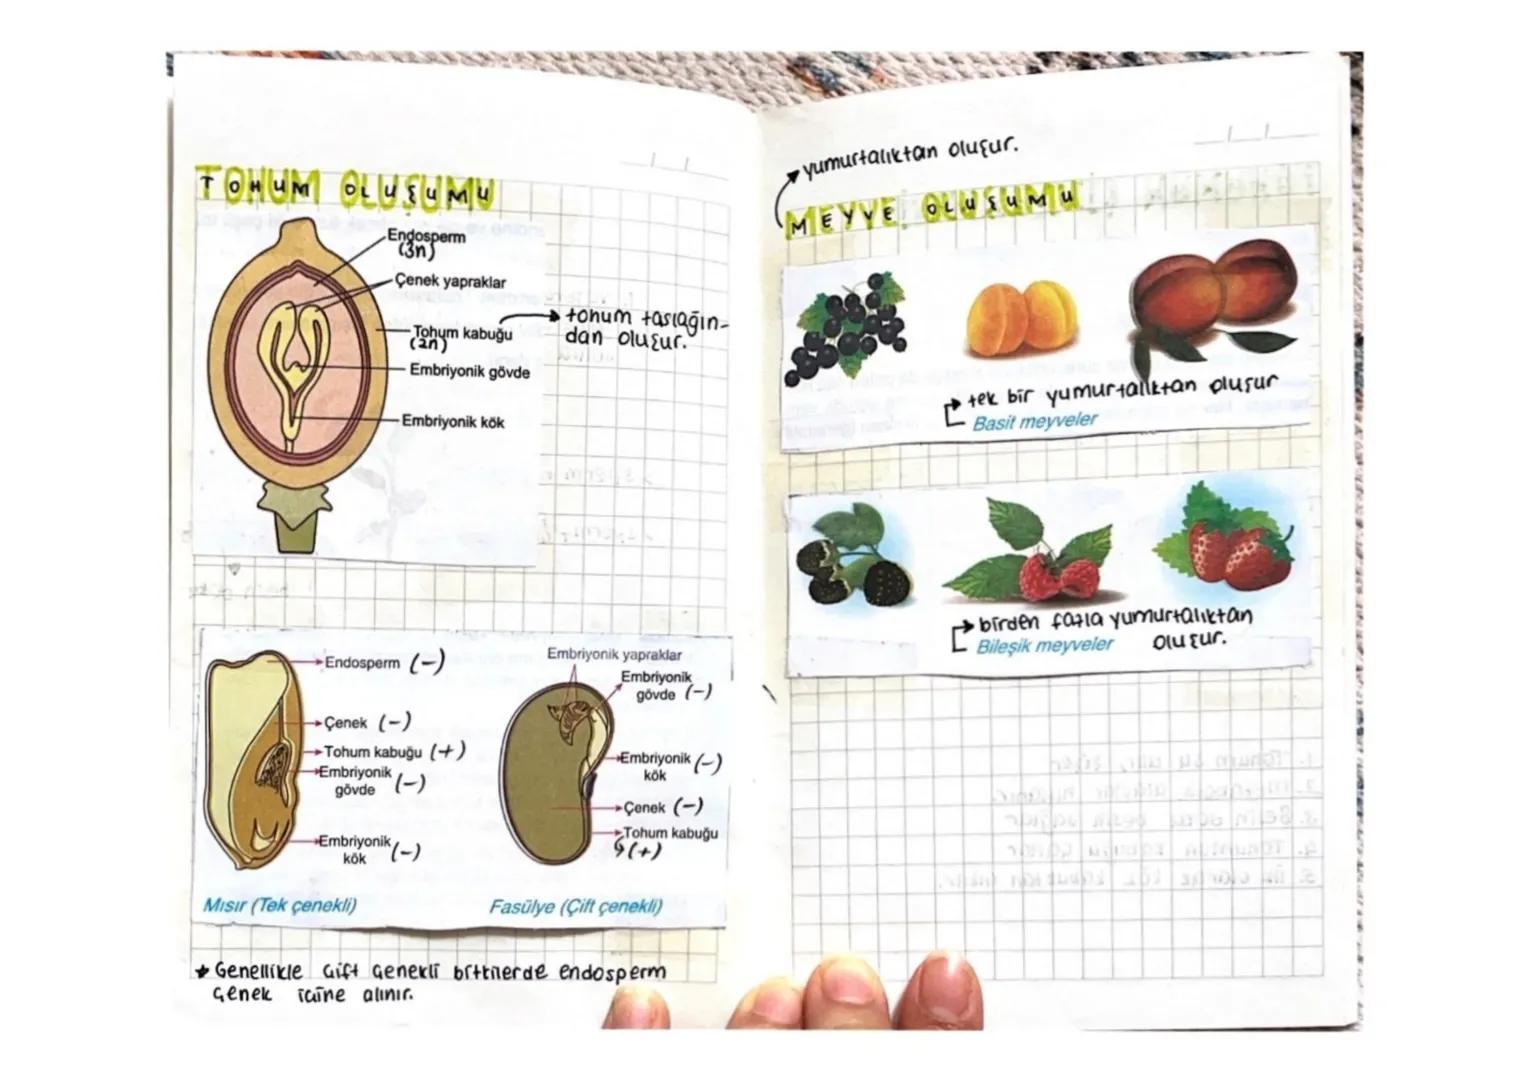 TOHUM OLUŞUMU
Endosperm
(3n)
Çenek yapraklar
Tohum kabuğu
(2n)
→ tohum taslağın-
dan oluşur.
Embriyonik gövde
Embriyonik kök
Endosperm (-)
Çenek (-)
Tohum kabuğu (+)
Embriyonik
gövde (-)
Embriyonik
kök (-)
Mısır (Tek çenekli)
Embriyonik yapraklar
Embriyonik
gövde (-)
Embriyonik
kök (-)
Çenek (-)
Tohum kabuğu
(+)
Fasülye (Çift çenekli)
Genellikle çift çenekli bitkilerde endosperm
çenek içine alınır.
yumurtalıktan oluşur.
MEYVE OLUŞUMU
tek bir yumurtalıktan oluşur
Basit meyveler
birden fazla yumurtalıktan
oluşur.
Bileşik meyveler